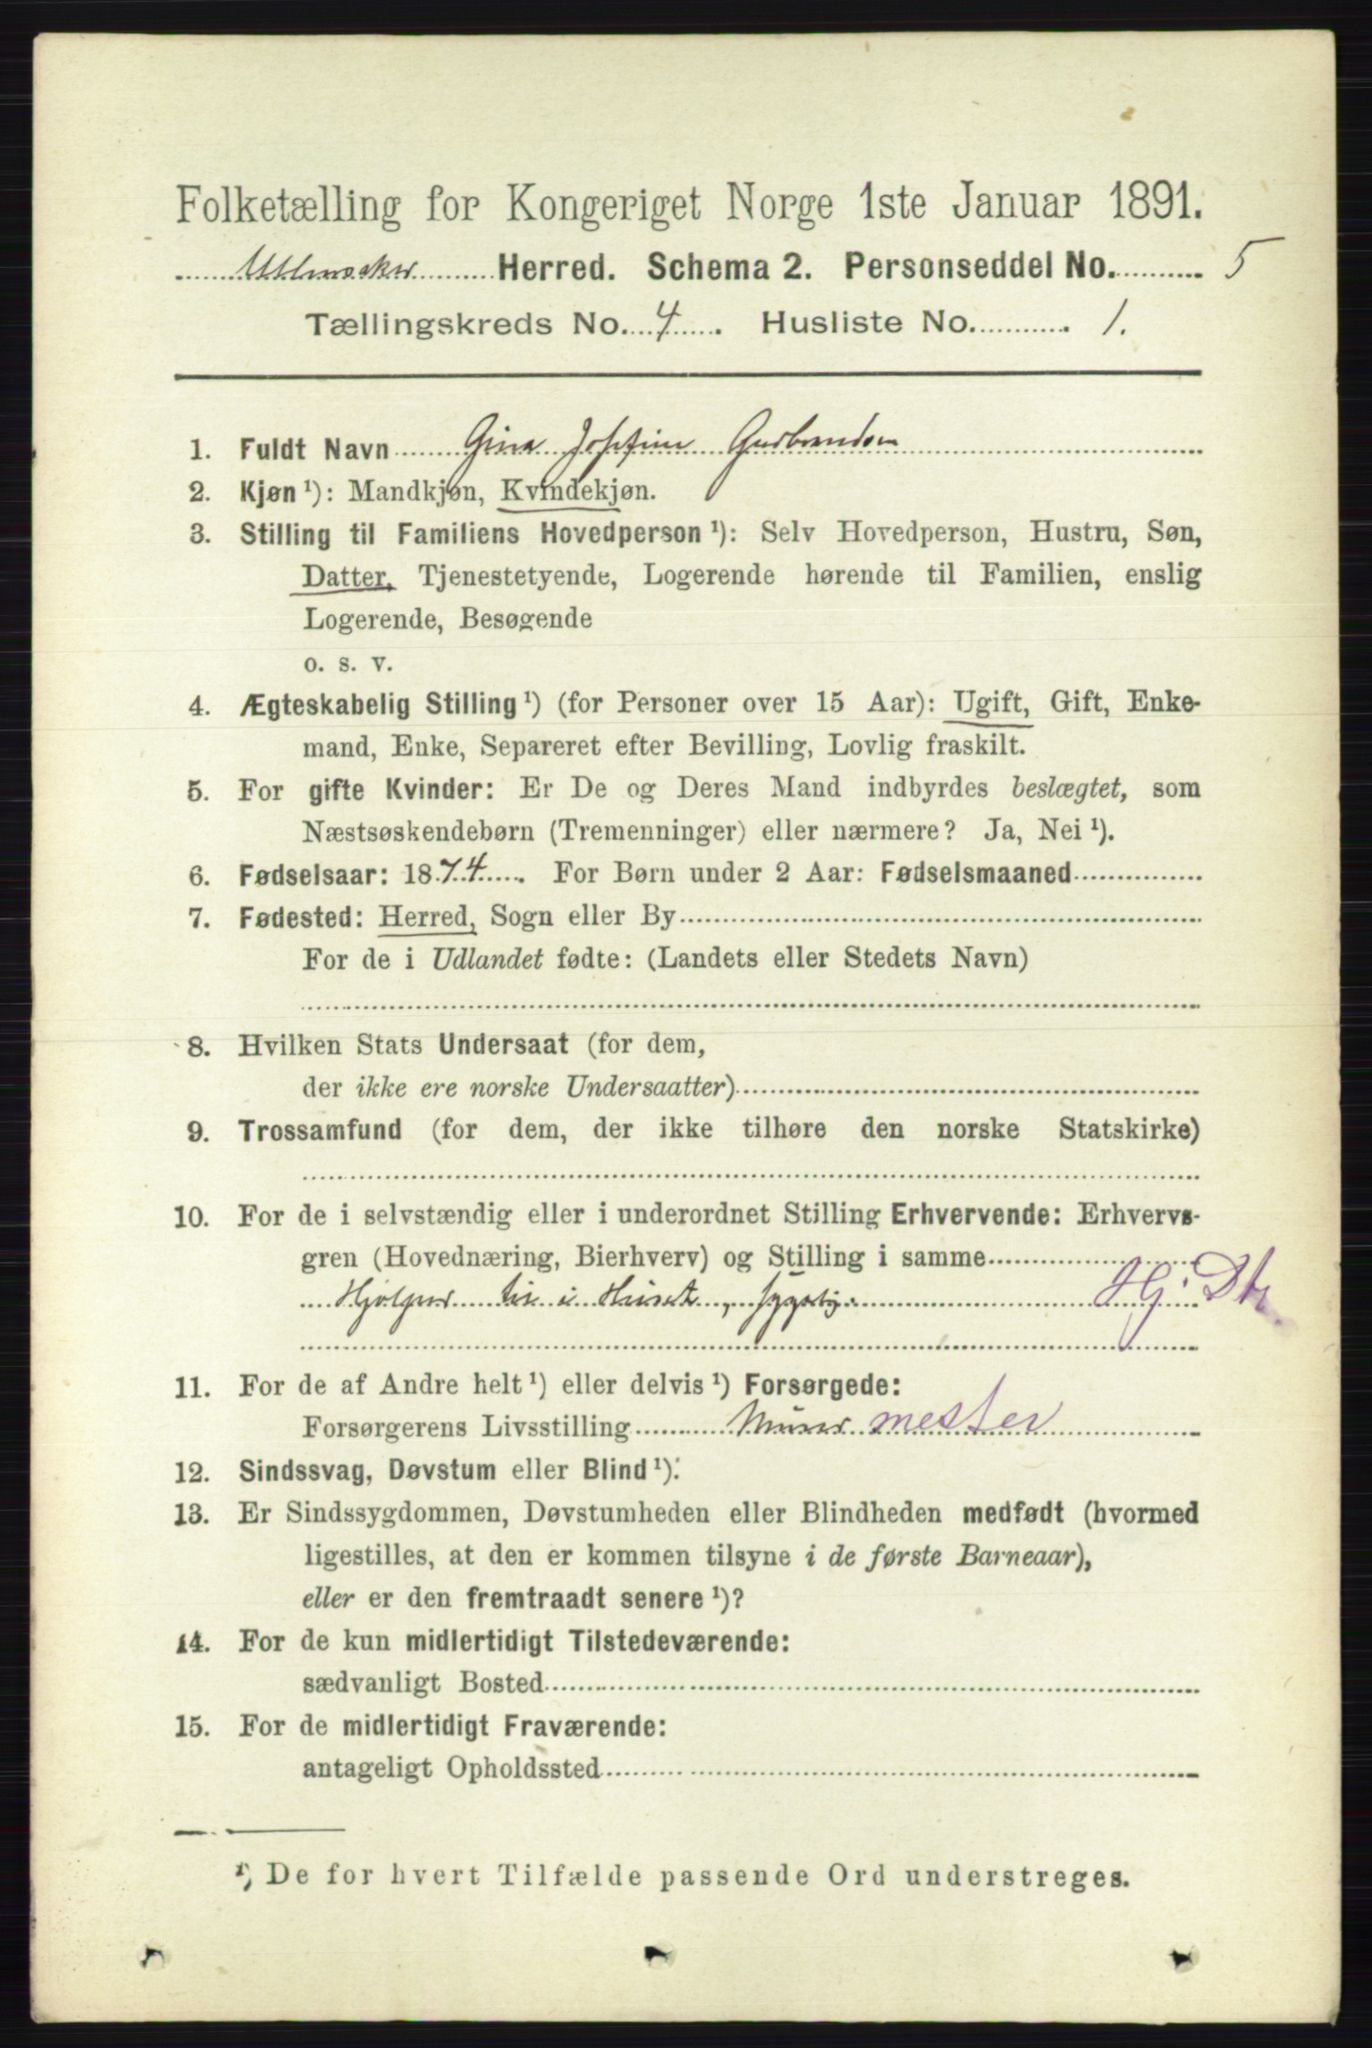 Folketælling for Kongeriget Norge 1ste Januar 1891.
Ullensaker Herred. Schema 2. Personseddel No. 5
Tællingskreds No. 4. Husliste No. 1.
1. Fuldt Navn Gina Josefine Gudbrandsen
2. Kjøn ¹): Mandkjøn, Kvindekjøn.
3. Stilling til Familiens Hovedperson ¹): Selv Hovedperson, Hustru, Søn,
Datter, Tjenestetyende, Logerende hørende til Familien, enslig
Logerende, Besøgende
o. s. v.
4. Ægteskabelig Stilling ¹) (for Personer over 15 Aar): Ugift, Gift, Enke-
mand, Enke, Separeret efter Bevilling, Lovlig fraskilt.
5. For gifte Kvinder: Er De og Deres Mand indbyrdes beslægtet, som
Næstsøskendebørn (Tremenninger) eller nærmere? Ja, Nei ¹).
6. Fødselsaar: 1874. For Børn under 2 Aar: Fødselsmaaned
7. Fødested: Herred, Sogn eller By
For de i Udlandet fødte: (Landets eller Stedets Navn)
8. Hvilken Stats Undersaat (for dem,
der ikke ere norske Undersaatter)
9. Trossamfund (for dem, der ikke tilhøre den norske Statskirke)
10. For de i selvstændig eller i underordnet Stilling Erhvervende: Erhvervs-
gren (Hovednæring, Bierhverv) og Stilling i samme
Hjælper til i Huset, sygelig. Hj. Dtr
11. For de af Andre helt ¹) eller delvis ¹) Forsørgede:
Forsørgerens Livsstilling Murermester
12. Sindssvag, Døvstum eller Blind ¹).
13. Er Sindssygdommen, Døvstumheden eller Blindheden medfødt (hvormed
ligestilles, at den er kommen tilsyne i de første Barneaar),
eller er den fremtraadt senere ¹)?
14. For de kun midlertidigt Tilstedeværende:
sædvanligt Bosted
15. For de midlertidigt Fraværende:
antageligt Opholdssted
¹) De for hvert Tilfælde passende Ord understreges.